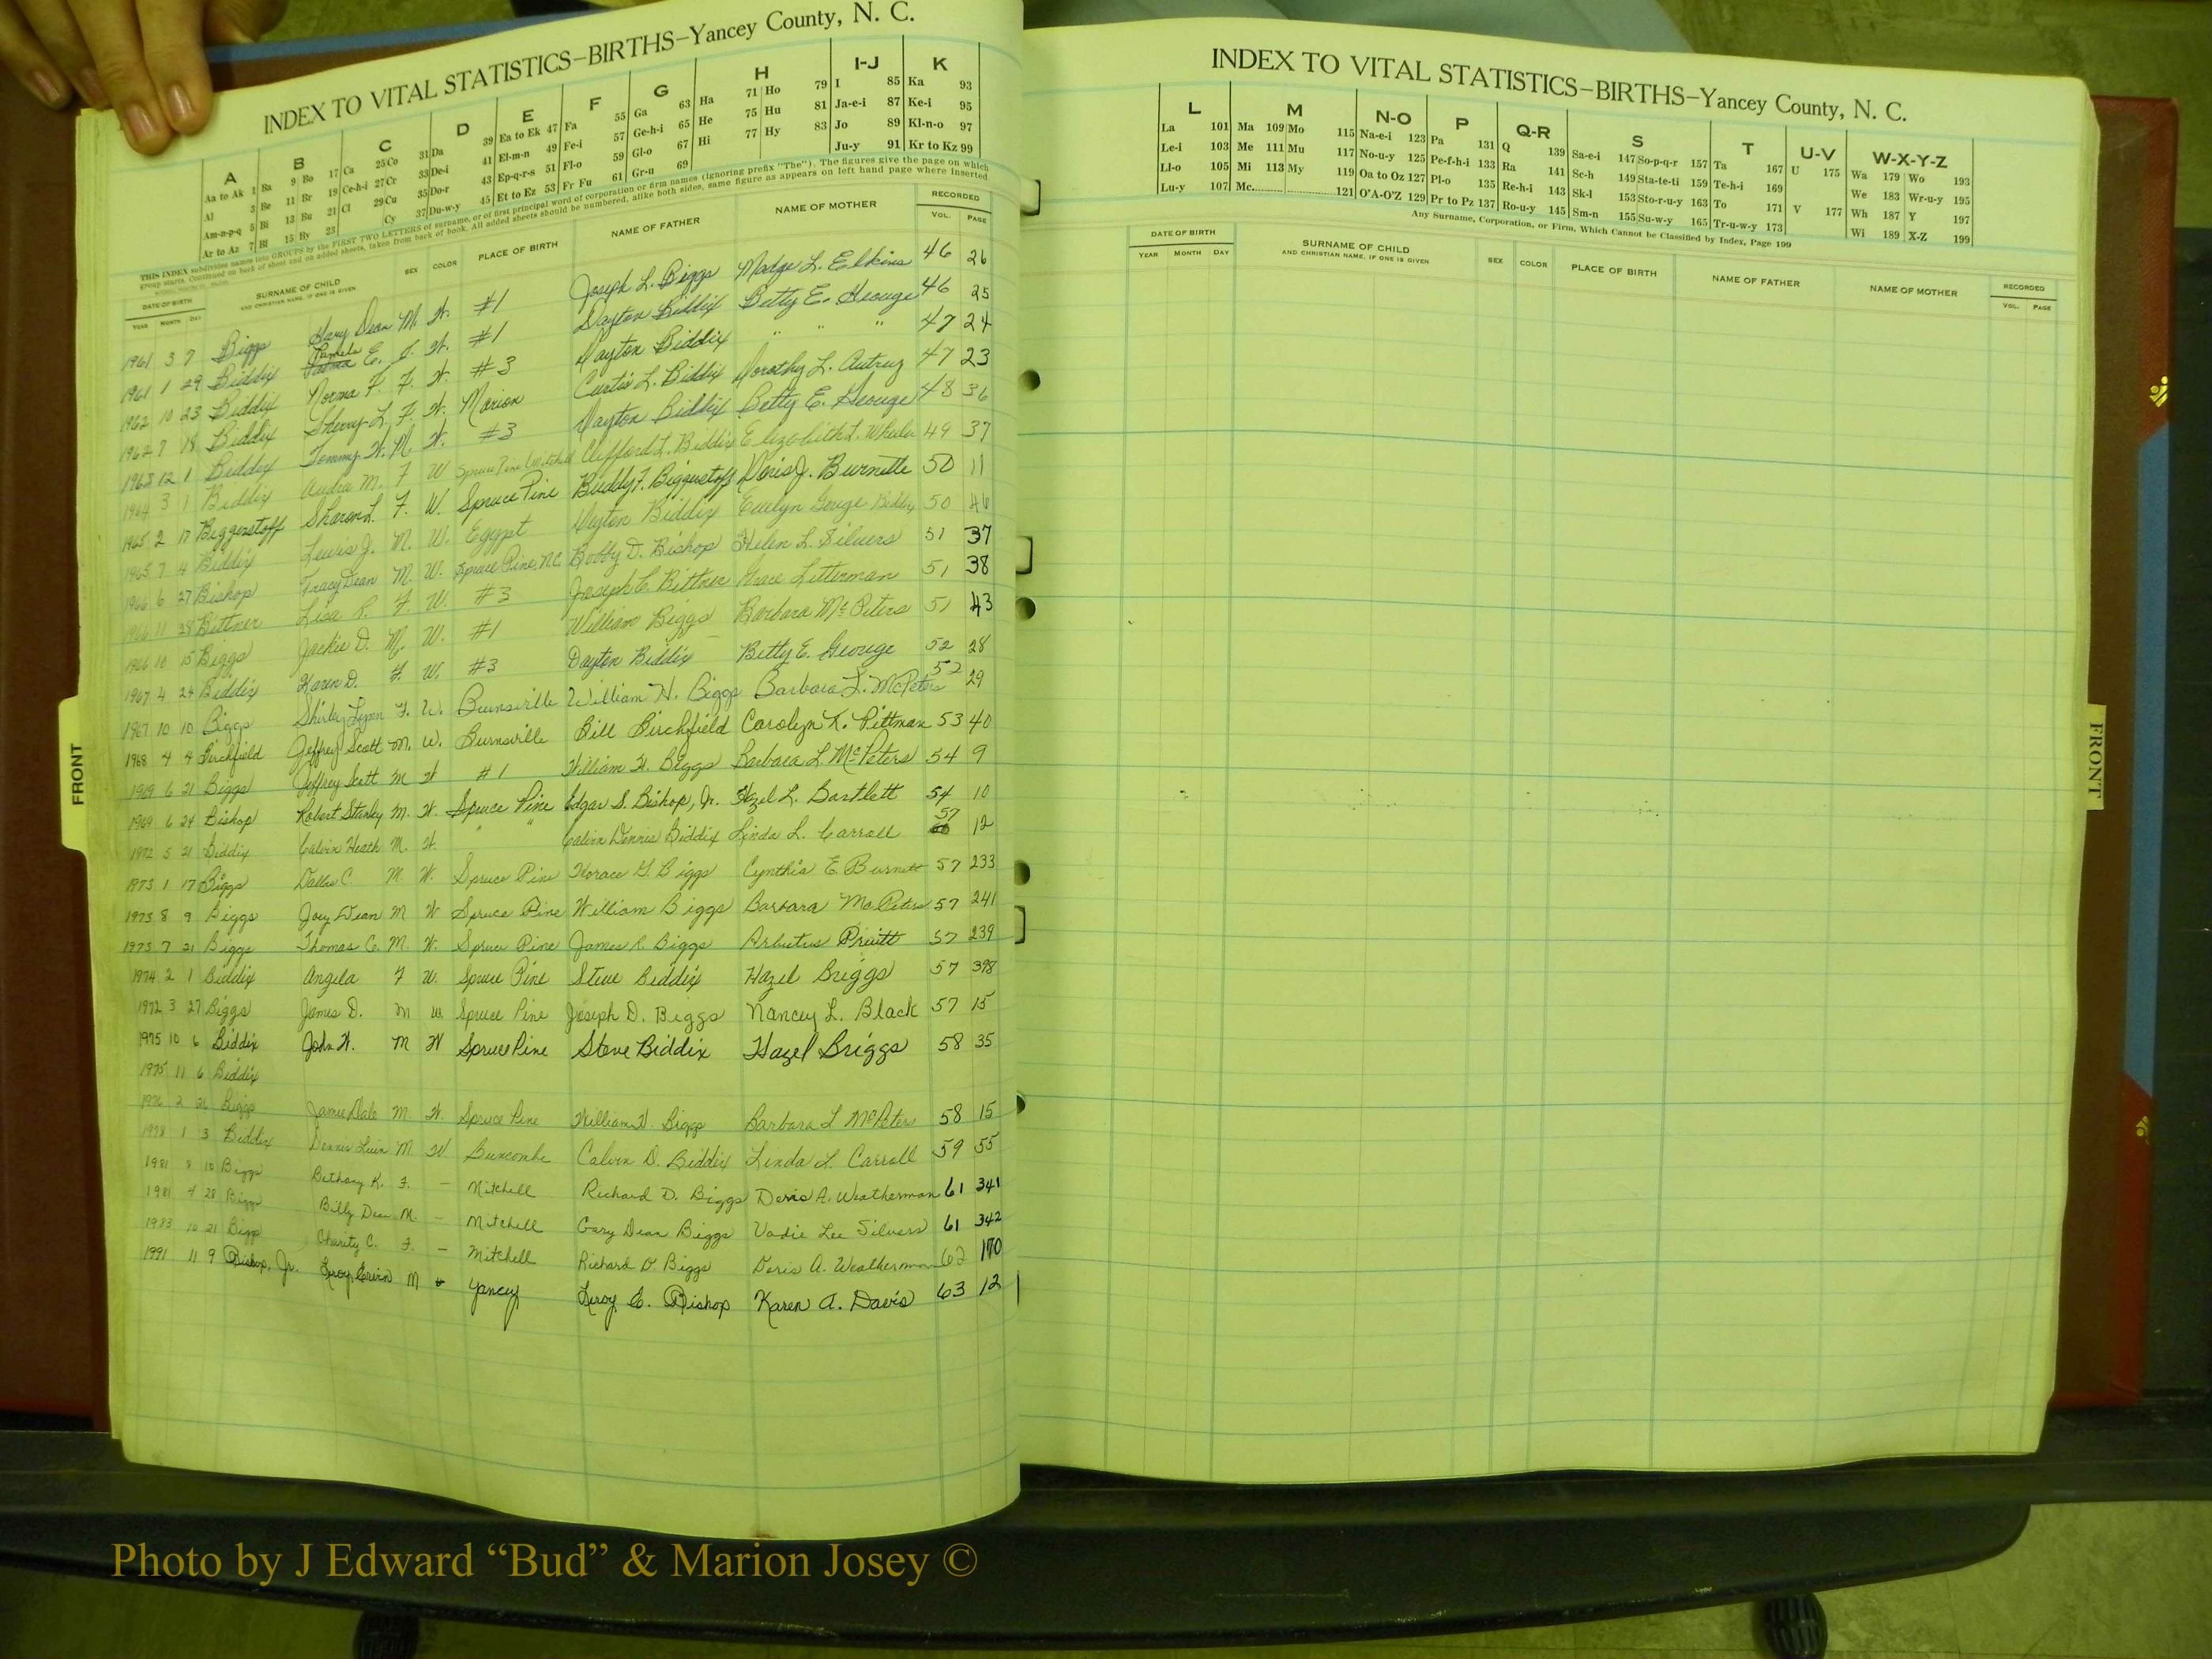 INDEX TO VITAL STATISTICS–BIRTHS–Yancey County, N. C.
A B C D E F G H I-J K
Aa to Ak 1 Ba 9 Bo 17 Ca 25 Co 31 Da 39 Ea to Ek 47 Fa 55 Ga 63 Ha 71 Ho 79 I 85 Ka 93
Al 3 Be 11 Br 19 Ce-h-i 27 Cr 33 De-i 41 El-m-n 49 Fe-i 57 Ge-h-i 65 He 75 Hu 81 Ja-e-i 87 Ke-i 95
Am-n-p-q 5 Bi 13 Bu 21 Cl 29 Cu 35 Do-r 43 Ep-q-r-s 51 Fl-o 59 Gl-o 67 Hi 77 Hy 83 Jo 89 Kl-n-o 97
Ar to Az 7 Bl 15 By 23 Cy 37 Du-w-y 45 Et to Ez 53 Fr Fu 61 Gr-u 69 Ju-y 91 Kr to Kz 99
THIS INDEX subdivides names into GROUPS by the FIRST TWO LETTERS of surname, or of first principal word of corporation or firm names (ignoring prefix "The"). The figures give the page on which
group starts. Continued on back of sheet and on added sheets, taken from back of book. All added sheets should be numbered, alike both sides, same figure as appears on left hand page where inserted
DATE OF BIRTH SURNAME OF CHILD SEX COLOR PLACE OF BIRTH NAME OF FATHER NAME OF MOTHER RECORDED
YEAR MONTH DAY AND CHRISTIAN NAME, IF ONE IS GIVEN VOL. PAGE
1961 3 7 Biggs Gary Dean M. W. #1 Joseph L. Biggs Madge L. Elkins 46 26
1961 1 29 Biddix Pamela E. F. W. #1 Dayton Biddix Betty E. George 46 25
1962 10 23 Biddix Norma F. F. W. #3 Dayton Biddix " " " 47 24
1962 7 18 Biddix Sherry L. F. W. Marion Curtis L. Biddix Dorothy L. Autrey 47 23
1963 12 1 Biddix Tommy W. M. W. #3 Dayton Biddix Betty E. George 48 36
1964 3 1 Biddix Audra M. F W Spruce Pine Mitchell Clifford L. Biddix Elizabeth L. Wheeler 49 37
1965 2 17 Biggerstoff Sharon L. F. W. Spruce Pine Buddy F. Biggerstoff Doris J. Burnette 50 11
1965 7 4 Biddix Lewis J. M. W. Egypt Dayton Biddix Evelyn Gouge Biddix 50 46
1966 6 27 Bishop Tracy Dean M. W. Spruce Pine, N.C. Bobby D. Bishop Helen L. Silvers 51 37
1966 11 28 Bittner Lisa R. F. W. #3 Joseph C. Bittner Grace Letterman 51 38
1966 10 15 Biggs Jackie D. M. W. #1 William Biggs Barbara McPeters 51 43
1967 4 24 Biddix Karen D. F. W. #3 Dayton Biddix Betty E. George 52 28
1967 10 10 Biggs Shirley Lynn F. W. Burnsville William H. Biggs Barbara L. McPeters 52 29
1968 4 4 Birchfield Jeffrey Scott M. W. Burnsville Bill Birchfield Carolyn K. Pittman 53 40
1969 6 21 Biggs Jeffrey Scott M W #1 William H. Biggs Barbara L McPeters 54 9
1969 6 24 Bishop Robert Stanley M. W. Spruce Pine Edgar S. Bishop, Jr. Hazel L. Bartlett 54 10
1972 5 21 Biddix Calvin Heath M. W. " " Calvin Dennis Biddix Linda L. Carroll 57 12
1973 1 17 Biggs Dallas C. M. W. Spruce Pine Horace G. Biggs Cynthia E. Burnett 57 233
1973 8 9 Biggs Joey Dean M W Spruce Pine William Biggs Barbara McPeters 57 241
1973 7 21 Biggs Thomas C. M. W. Spruce Pine James R. Biggs Arbutus Pruitt 57 239
1974 2 1 Biddix Angela F W. Spruce Pine Steve Biddix Hazel Briggs 57 398
1972 3 27 Biggs James D. M W. Spruce Pine Joseph D. Biggs Nancy L. Black 57 15
1975 10 6 Biddix John W. M W Spruce Pine Steve Biddix Hazel Briggs 58 35
1975 11 6 Biddix
1976 2 26 Biggs Jamie Dale M W. Spruce Pine William H. Biggs Barbara L McPeters 58 15
1978 1 3 Biddix Dennis M W Buncombe Calvin D. Biddix Linda L. Carroll 59 55
1981 8 10 Biggs Bethany K. F. – Mitchell Richard D. Biggs Doris A. Weatherman 61 341
1981 4 28 Biggs Billy Dean M. – Mitchell Gary Dean Biggs Vadie Lee Silvers 61 342
1983 10 21 Biggs Charity C. F. – Mitchell Richard D. Biggs Doris A. Weatherman 62 170
1991 11 9 Bishop, Jr. Leroy Ervin M Yancey Leroy E. Bishop Karen A. Davis 63 12
FRONT
INDEX TO VITAL STATISTICS–BIRTHS–Yancey County, N. C.
L M N-O P Q-R S T U-V W-X-Y-Z
La 101 Ma 109 Mo 115 Na-e-i 123 Pa 131 Q 139 Sa-e-i 147 So-p-q-r 157 Ta 167 U 175 Wa 179 Wo 193
Le-i 103 Me 111 Mu 117 No-u-y 125 Pe-f-h-i 133 Ra 141 Sc-h 149 Sta-te-ti 159 Te-h-i 169 We 183 Wr-u-y 195
Ll-o 105 Mi 113 My 119 Oa to Oz 127 Pl-o 135 Re-h-i 143 Sk-l 153 Sto-r-u-y 163 To 171 V 177 Wh 187 Y 197
Lu-y 107 Mc 121 O'A-O'Z 129 Pr to Pz 137 Ro-u-y 145 Sm-n 155 Su-w-y 165 Tr-u-w-y 173 Wi 189 X-Z 199
Any Surname, Corporation, or Firm, Which Cannot be Classified by Index, Page 199
DATE OF BIRTH SURNAME OF CHILD SEX COLOR PLACE OF BIRTH NAME OF FATHER NAME OF MOTHER RECORDED
YEAR MONTH DAY AND CHRISTIAN NAME, IF ONE IS GIVEN VOL. PAGE
FRONT
Photo by J Edward “Bud” & Marion Josey ©